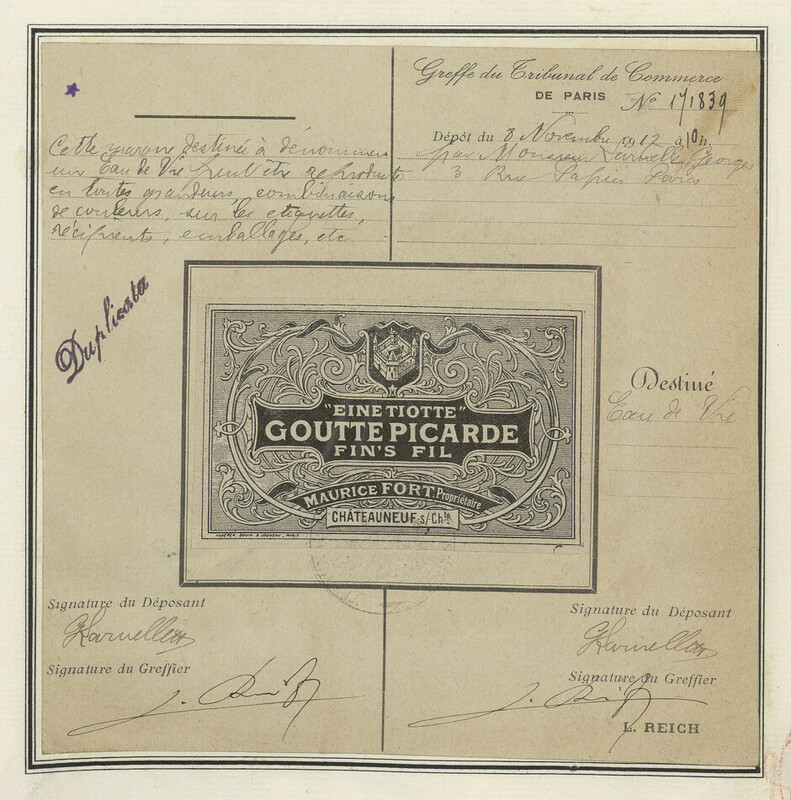 Greffe du Tribunal de Commerce
DE PARIS Nº 171839
Dépôt du 8 Novembre 1912 à 10h.
par Monsieur Larnelle, Georges
3 Rue Paris
Cette marque destinée à dénommer
une Eau de Vie peut être reproduite
en toutes grandeurs, combinaisons
de couleurs, sur les etiquettes,
récipients, emballages, etc
Duplicata
"EINE TIOTTE"
GOUTTE PICARDE
FIN'S FIL
MAURICE FORT, Propriétaire
CHATEAUNEUF s/-Chte
Destiné
Eau de Vie
Signature du Déposant
Signature du Greffier
Signature du Déposant
Signature du Greffier
L. REICH